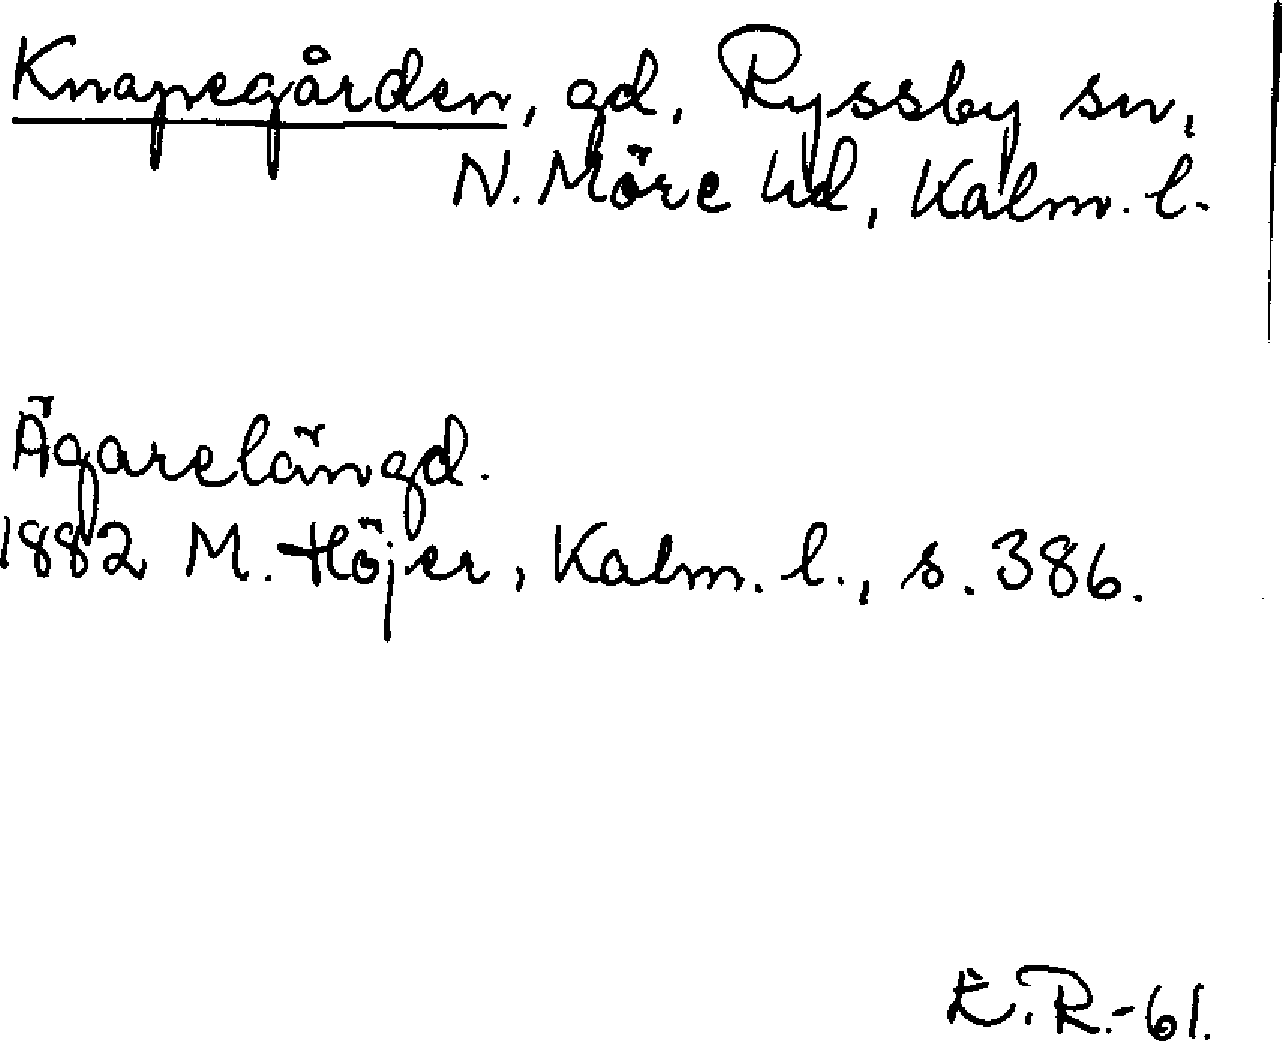 Knapegården, gd, Ryssby sn,
N. Möre hd, Kalm. l.
Ägarelängd.
1882 M. Höjer, Kalm. l., s. 386.
E.R.-61.